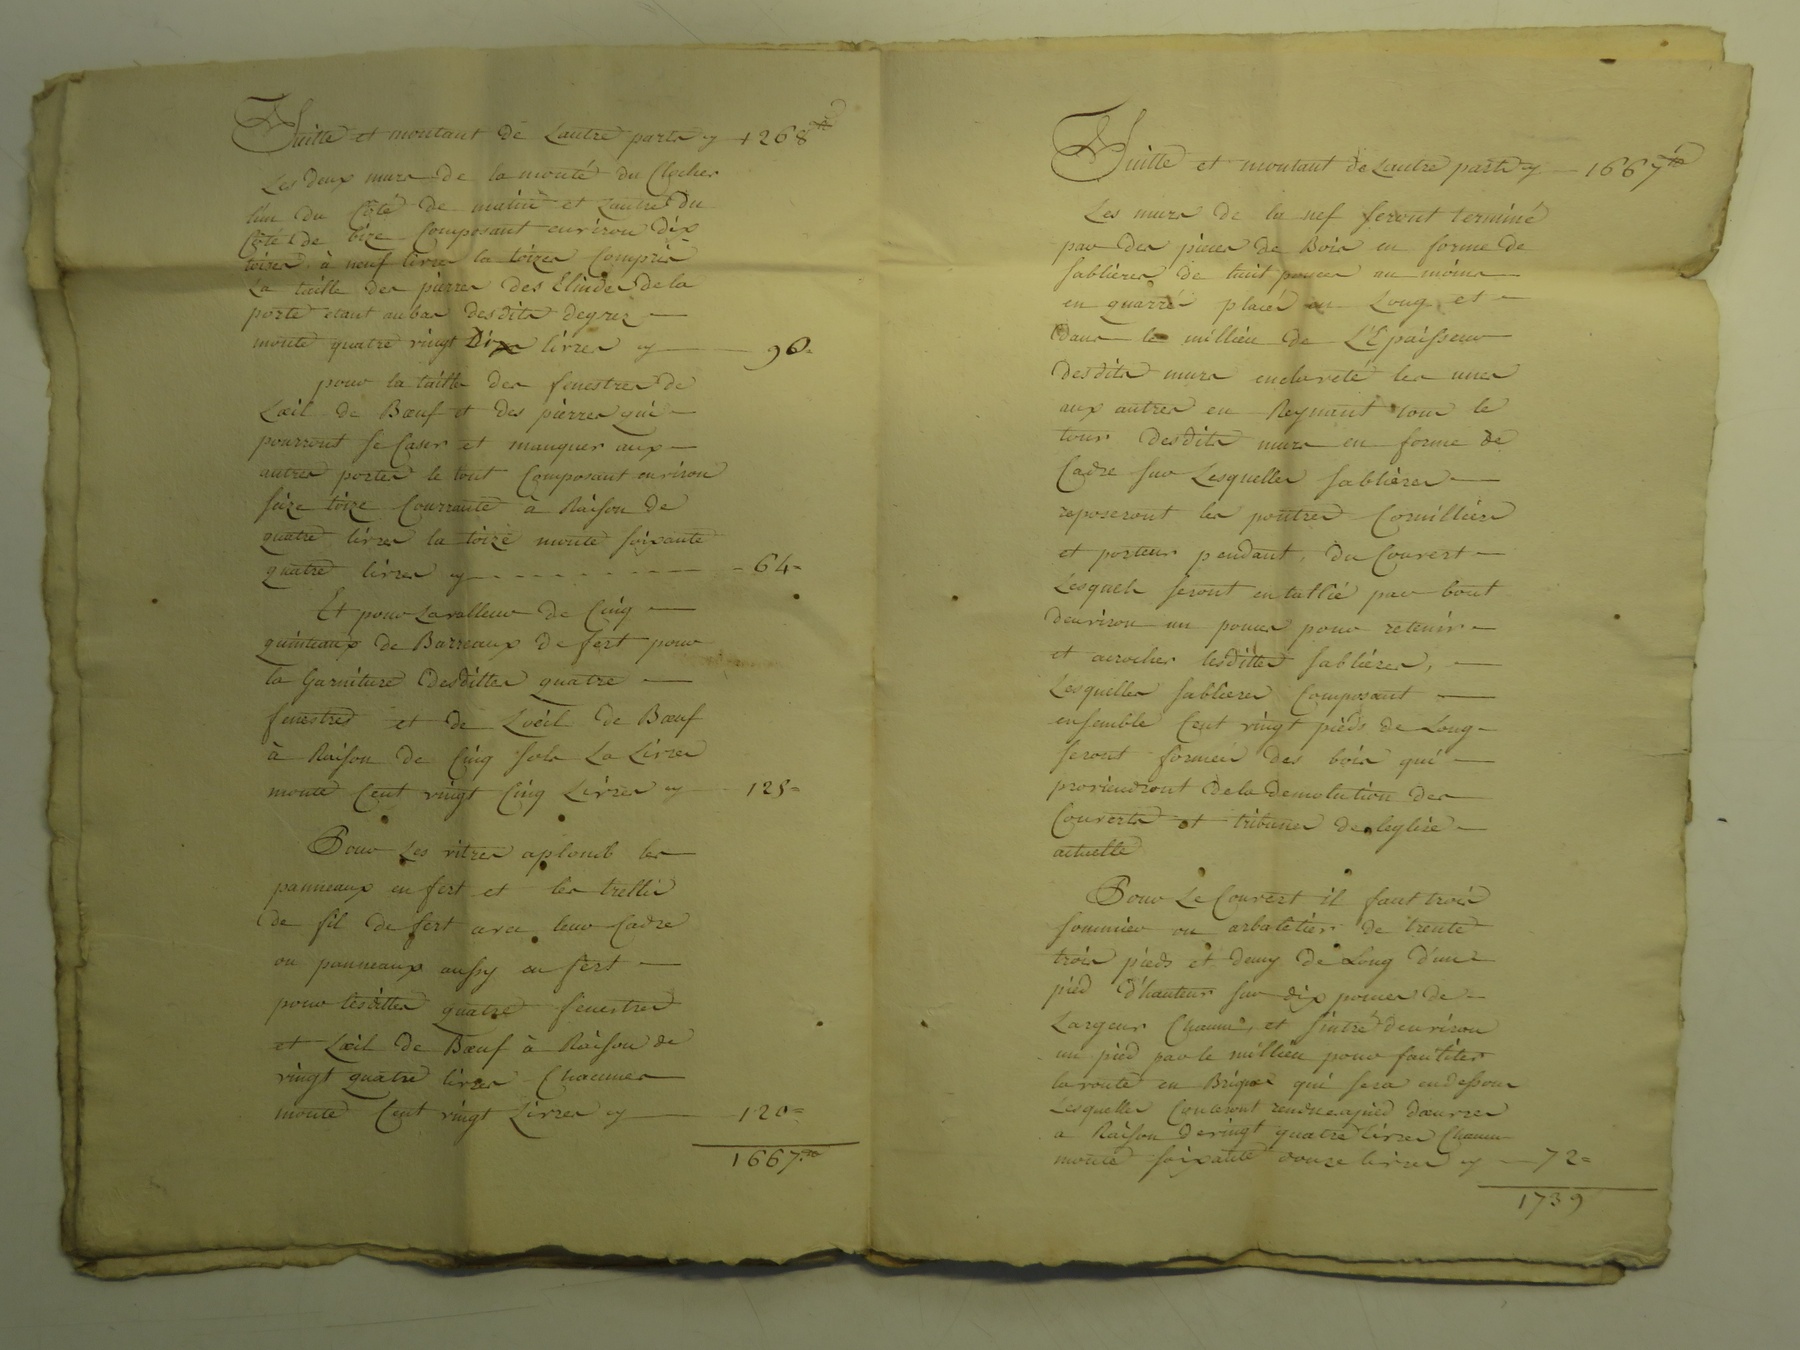 Suitte et montant de Lautre parte cy 1268ᵗᵗ
Les deux murs de la monté du Clocher
lun du Côté de matin et Lautre du
Côté de bize Composant environ dix
toizes à neuf livres la toizes Compris
La taille des pierres des Elindes de la
porte etant au bas desdits degrez
monte quatre vingt Dix livres cy 90=
pour la taille des fenestres de
Lœil de Bœuf et des pierres qui
pourront se Caser et manquer aux
autres portes le tout Composant environ
seize toize Courrante à Raison de
quatre livres la toize monte soixante
quatre livres cy - - - - - - - - - 64=
Et pour La valleur de Cinq
quinteaux de Barreaux de fert pour
la Garniture Desdittes quatre
fenestres et de Lœil de Bœuf
à Raison de Cinq sols La Livres
monte Cent vingt Cinq Livres cy 125=
Pour Les vitres aplomb les
panneaux en fert et les trellis
de fil de fert avec leur Cadre
ou panneaux aussy en fert
pour lesdittes quatre fenestres
et Lœil de Bœuf à Raison de
vingt quatre livres Chacunes
monte Cent vingt Livres cy 120=
1667ᵗᵗ
Suitte et montant de Lautre parte cy 1667ᵗᵗ
Les murs de la nef seront terminé
par des pieces de Bois en forme de
sablieres de huit pouces au moins
en quarré placé en Long et
dans le millieu de L'Epaisseur
desdits murs enclaveté les unes
aux autres en Reynant tour le
tour desdits murs en forme de
Cadre sur Lesquelles sablieres
reposeront les poutres Cornillieres
et porteur pendant, du Couvert
Lesquels seront entallié par bout
denviron un pouces pour retenir
et acrocher lesdittes sablieres,
Lesquelles sablieres Composant
ensemble Cent vingt pieds de Long
seront formée des bois qui
proviendront de la demolution des
Couverts et tribunes de leglise
actuelle
Pour Le Couvert il faut trois
sommier ou arbaletier de trente
trois pieds et demy de Long d'un
pied d'hauteur sur dix pouces de
Largeur Chacun, et sintré denviron
un pied par le millieu pour faciliter
la voute en Brique qui sera en dessous
Lesquelles Couteront rendue apied dœuvres
a Raison de vingt quatre livres Chacun
monte soixante douze livres cy 72=
1739